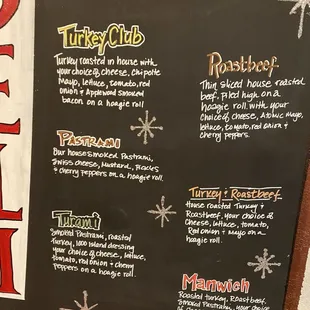 DELI
Turkey Club
Turkey roasted in house with
your choice of cheese, Chipotle
Mayo, lettuce, tomato, red
onion & Applewood smoked
bacon on a hoagie roll
Pastrami
Our house smoked Pastrami,
Swiss cheese, Mustard, Pickles
& cherry peppers on a hoagie roll.
Turami
Smoked Pastrami, roasted
Turkey, 1000 island dressing
your choice of cheese, lettuce,
tomato, red onion & cherry
peppers on a hoagie roll.
Roastbeef
Thin sliced house roasted
beef. Piled high on a
hoagie roll with your
choice of cheese, Atomic Mayo,
lettuce, tomato, red onion &
Pickles
Turkey & Roastbeef
House roasted Turkey &
Roastbeef, your choice of
Cheese, lettuce, tomato,
Red onion & Mayo on a
hoagie roll.
Manwich
Roasted turkey, Roastbeef,
Smoked Pastrami, your